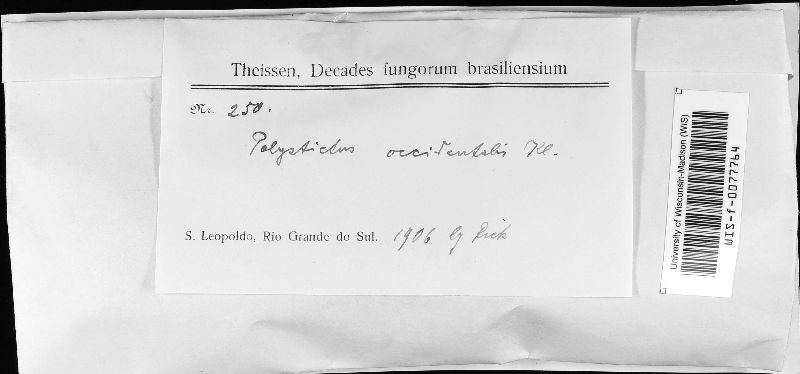 Theissen, Decades fungorum brasiliensium
Nr. 250.
Polystictus occidentalis Kl.
S. Leopoldo, Rio Grande do Sul. 1906 lg Rick
University of Wisconsin-Madison (WIS)
WIS-f-0077764